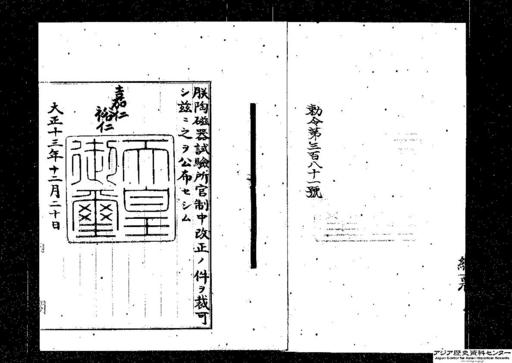 勅令第三百八十一號
朕陶磁器試驗所官制中改正ノ件ヲ裁可
シ茲ニ之ヲ公布セシム
嘉仁
裕仁
天皇
御璽
大正十三年十二月二十日
アジア歴史資料センター
Japan Center for Asian Historical Records